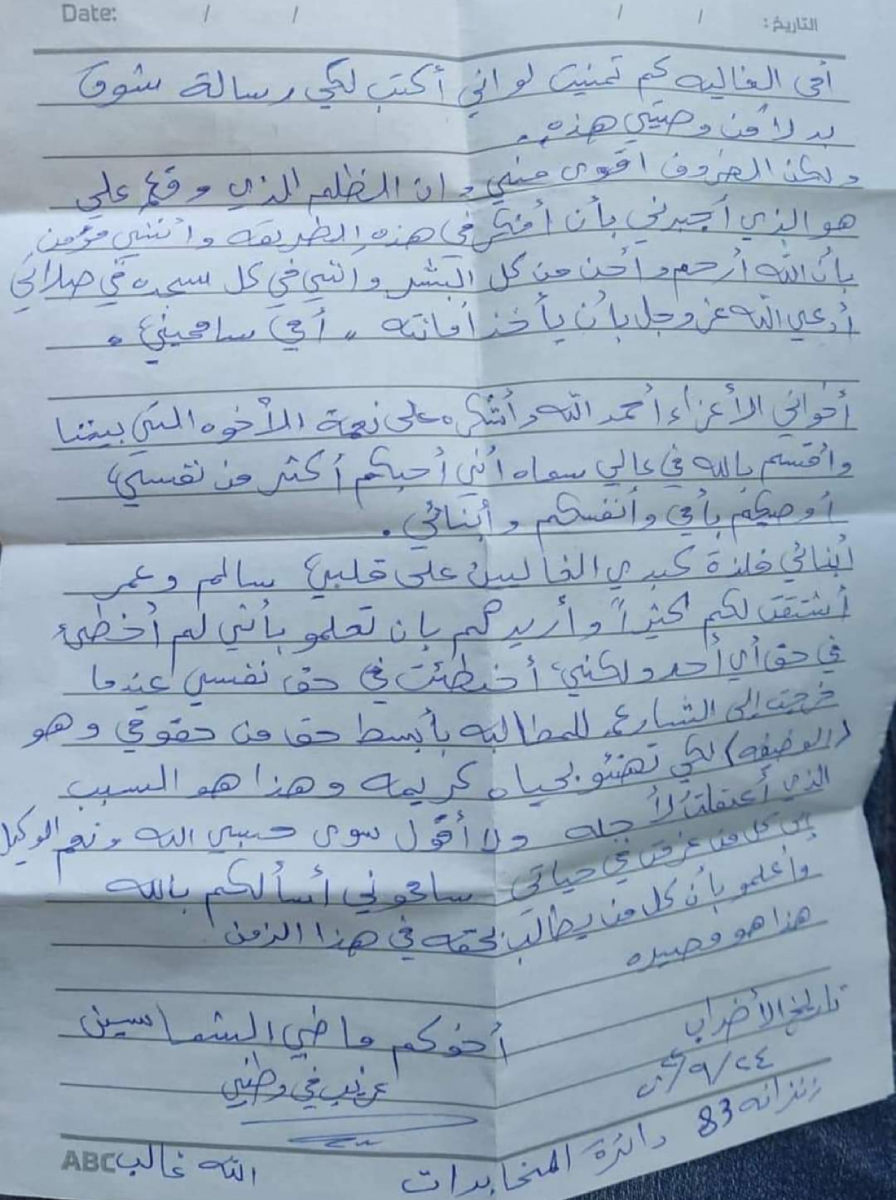 Date: / /
/ / التاريخ:
أمي الغاليه كم تمنيت لو اني أكتب لكي رسالة شوق
بدلا من وصيتي هذه..
ولكن الضروف اقوى مني وان الظلم الذي وقع علي
هو الذي أجبرني بأن أفكر في هذه الطريقه وأنني مؤمن
بأن الله أرحم وأحن من كل البشر وانني في كل سجده في صلاتي
أدعي الله عز وجل بأن يأخذ أمانته، أمي سامحيني.
أخواني الأعزاء أحمد الله وأشكره على نعمة الأخوه التي بيننا
واقسم بالله في عالي سماه أني أحبكم أكثر من نفسي
أوصيكم بأمي وأنفسكم وأبنائي.
أبنائي فلذة كبدي الغاليين على قلبي سالم وعمر
أشتقت لكم كثيراً وأريدكم بان تعلمو بأنني لم أخطئ
في حق أي أحد ولكني أخطئت في حق نفسي عندما
خرجت إلى الشارع للمطالبه بأبسط حق من حقوقي وهو
(الوضيفه) لكي تهنئو بحياه كريمه وهذا هو السبب
الذي أعتقلت لأجله ولا أقول سوى حسبي الله ونعم الوكيل
إلى كل من عرفت في حياتي سامحوني أسألكم بالله
وأعلمو بأن كل من يطالب بحقه في هذا الزمن
هذا هو مصيره
تاريخ الأضراب
٢٤/٩/
أخوكم ماضي الشماسين
غريب في وطني
زنزانه 83 دائرة المخابرات
الله غالب
ABC